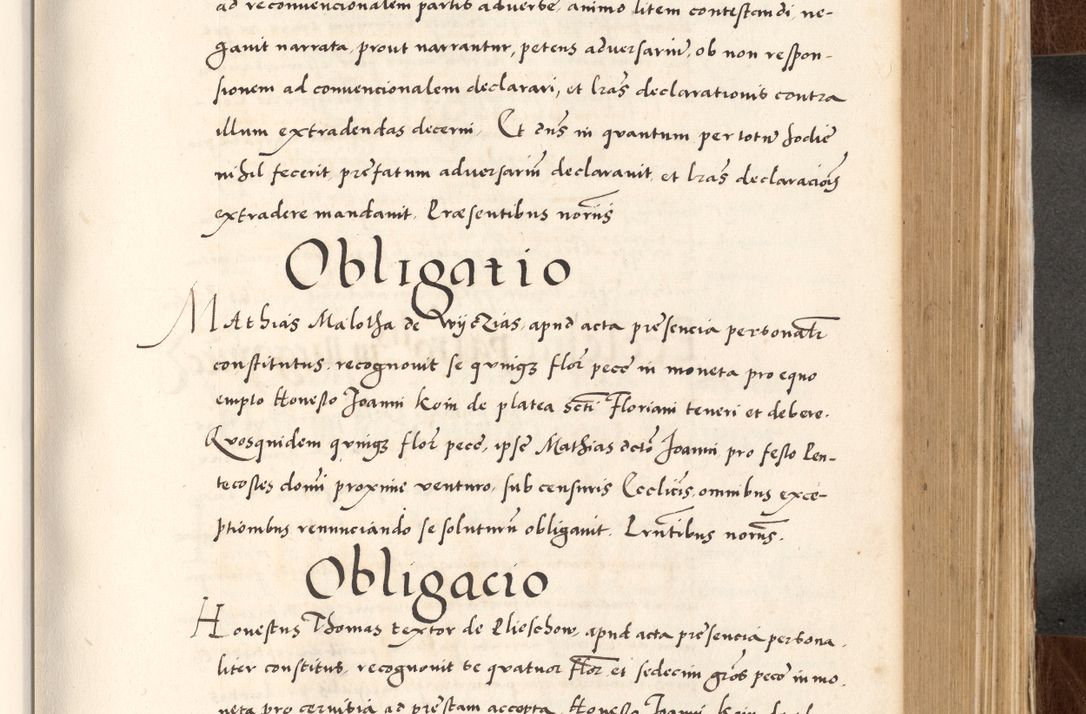 ad reconvencionalem partis adverse, animo litem contestandi, ne-
gavit narrata, prout narrantur, petens adversariũ, ob non respon-
sionem ad convencionalem declarari, et lrãs declarationis contra
illum extradendas decerni. Et dñs in quantum per totũ hodie
nihil fecerit, prẽfatum adversariũ declaravit, et lrãs declaraciõis
extradere mandavit. Præsentibus notariis
Obligatio
Mathias Malotha de Wyczias, apud acta prẽsencia personalr̃
constitutus, recognovit se quinqȝ flor̃ pecc̃ in moneta pro equo
empto Honesto Joanni Koin de platea sc̃ti Floriani teneri et debere.
Quosquidem quinqȝ flor̃ pecc̃, ipse Mathias dcto Joanni pro festo Pen-
tecostes domi proxime venturo, sub censuris Ecclĩcis, omnibus exce-
ptionibus renunciando se soluturũ obligavit. Prñtibus notariis.
Obligacio
Honestus Thomas textor de Clieschow, apud acta prẽsencia persona-
liter constitus, recognovit se quatuor Flor̃ et sedecim grõs pecc̃ in mo-
neta pro cervisia ad prẽstam accepta, Honesto Joanni Koin